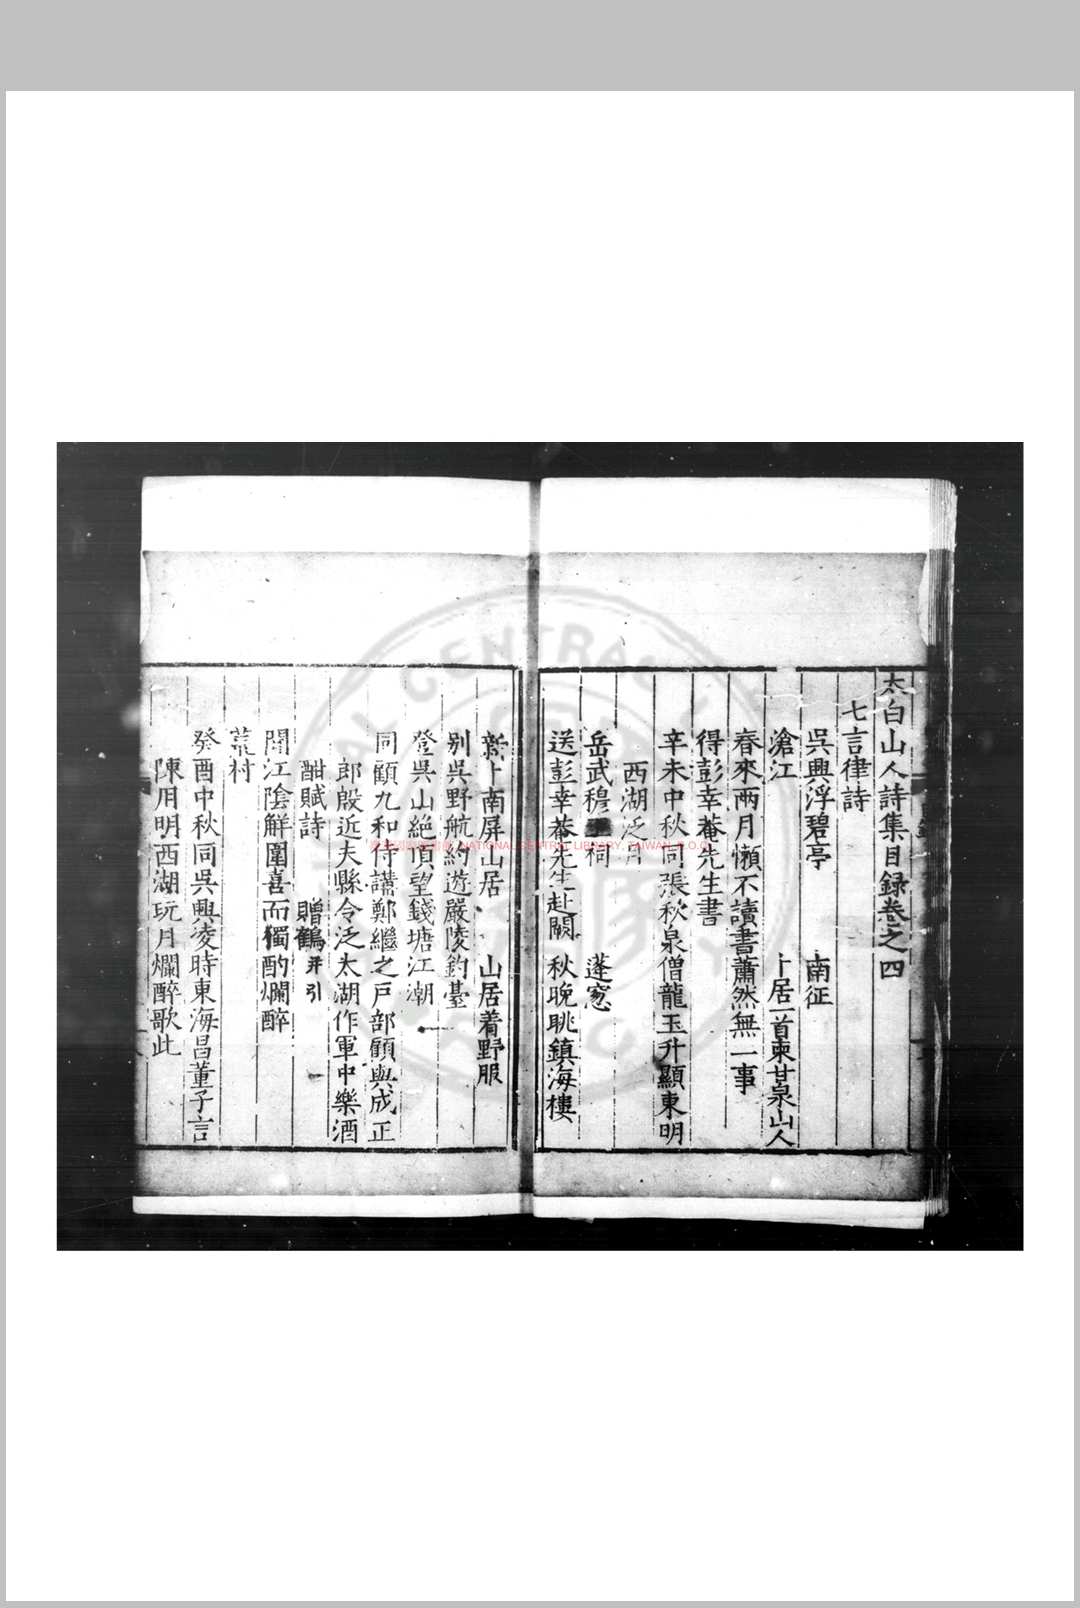 太白山人詩集目録卷之四
七言律詩
吳興浮碧亭 南征
滄江 卜居一首柬甘泉山人
春來兩月懶不讀書蕭然無一事
得彭幸菴先生書
辛未中秋同張秋泉僧龍玉升顯東明
西湖泛月
岳武穆王祠 蓬窓
送彭幸菴先生赴闕 秋晚眺鎮海樓
新卜南屏山居 山居着野服
别吳野航約遊嚴陵釣臺
登吳山絶頂望錢塘江潮
同顧九和侍講鄭繼之戸部顧與成正
郎殷近夫縣令泛太湖作軍中樂酒
酣賦詩 贈鶴并引
聞江陰解圍喜而獨酌爛醉
荒村
癸酉中秋同吳興凌時東海昌董子言
陳用明西湖玩月爛醉歌此
NATIONAL CENTRAL LIBRARY, TAIWAN, R.O.C.